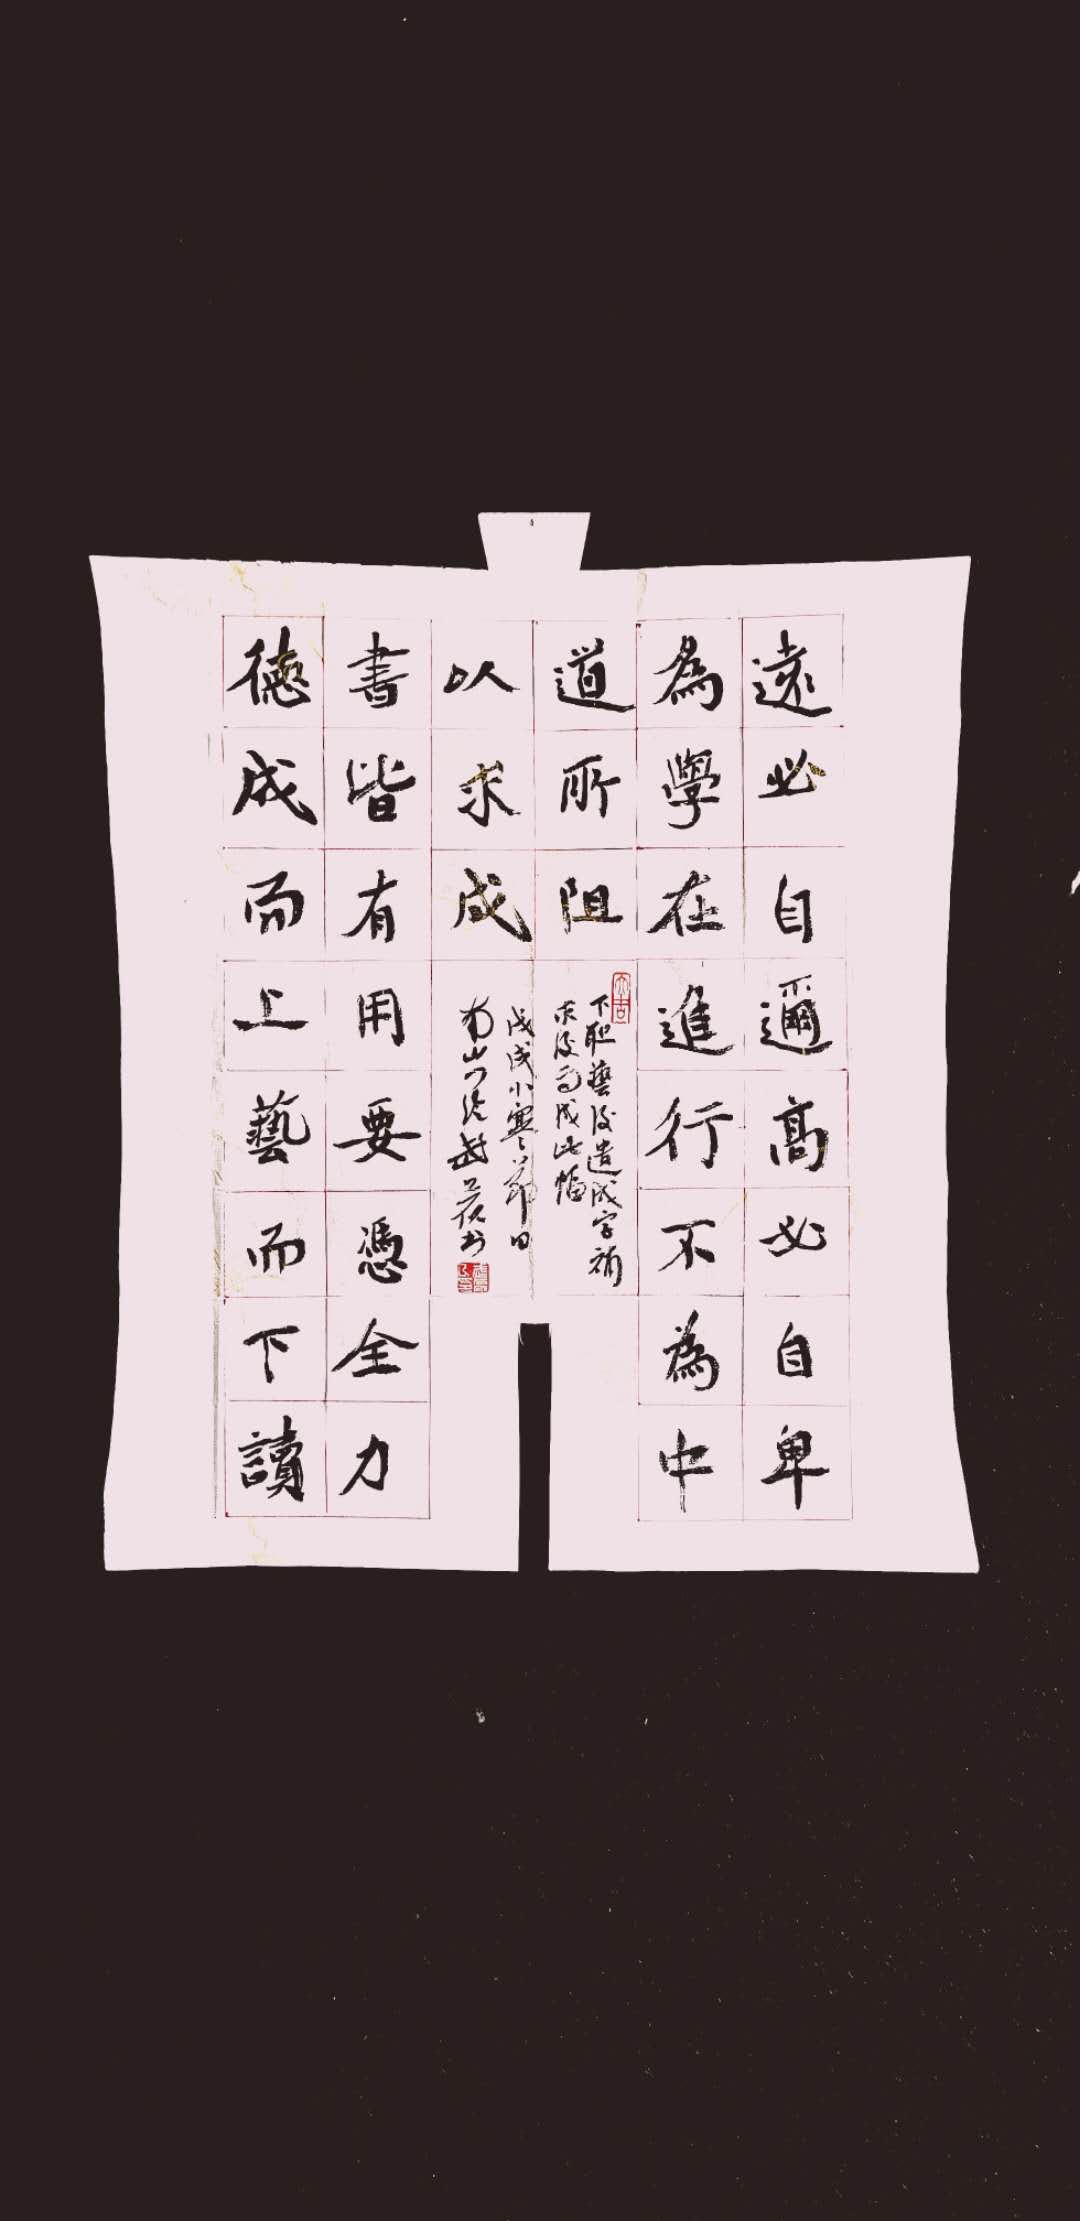 遠必自邇高必自卑
為學在進行不為中
道所阻
以求成
書皆有用要憑全力
德成而上藝而下讀
大吉
藝後遺成字補
求後而成此幅
戊戌小寒節日